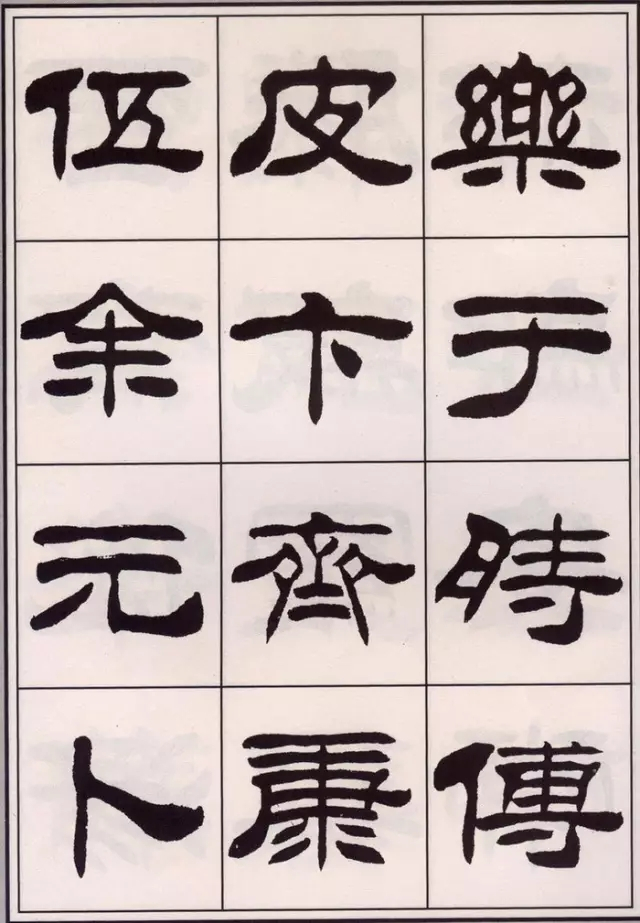 樂于時傅
皮卞齊康
伍余元卜